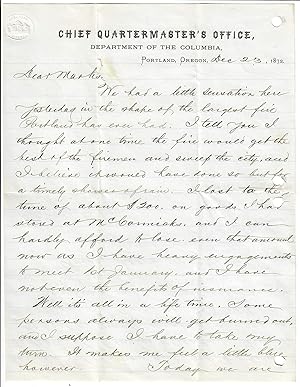 CHIEF QUARTERMASTER'S OFFICE,
DEPARTMENT OF THE COLUMBIA,
PORTLAND, OREGON, Dec 23, 1872.
Dear
We had a little sensation here
yesterday in the shape of the largest fire
Portland has ever had. I tell you I
thought at one time the fire would get the
best of the firemen and sweep the city, and
I believe it would have done so but for
a timely shower of rain. I lost to the
time of about $200. on goods I had
stored at McCormicks, and I can
hardly afford to lose even that amount
now as I have heavy engagements
to meet 1st January, and I have
not even the benefits of insurance.
Well it's all in a life time. Some
persons always will get burned out,
and I suppose I have to take my
turn. It makes me feel a little blue
however. Today we are